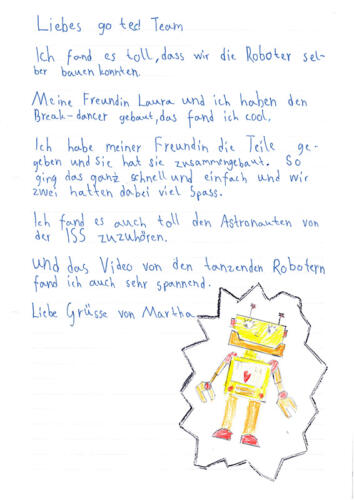 Liebes go ted Team
Ich fand es toll, dass wir die Roboter sel-
ber bauen konnten.
Meine Freundin Laura und ich haben den
Break-dancer gebaut, das fand ich cool.
Ich habe meiner Freundin die Teile ge-
geben und sie hat sie zusammengebaut. So
ging das ganz schnell und einfach und wir
zwei hatten dabei viel Spass.
Ich fand es auch toll den Astronauten von
der ISS zuzuhören.
und das Video von den tanzenden Robotern
fand ich auch sehr spannend.
Liebe Grüsse von Martha